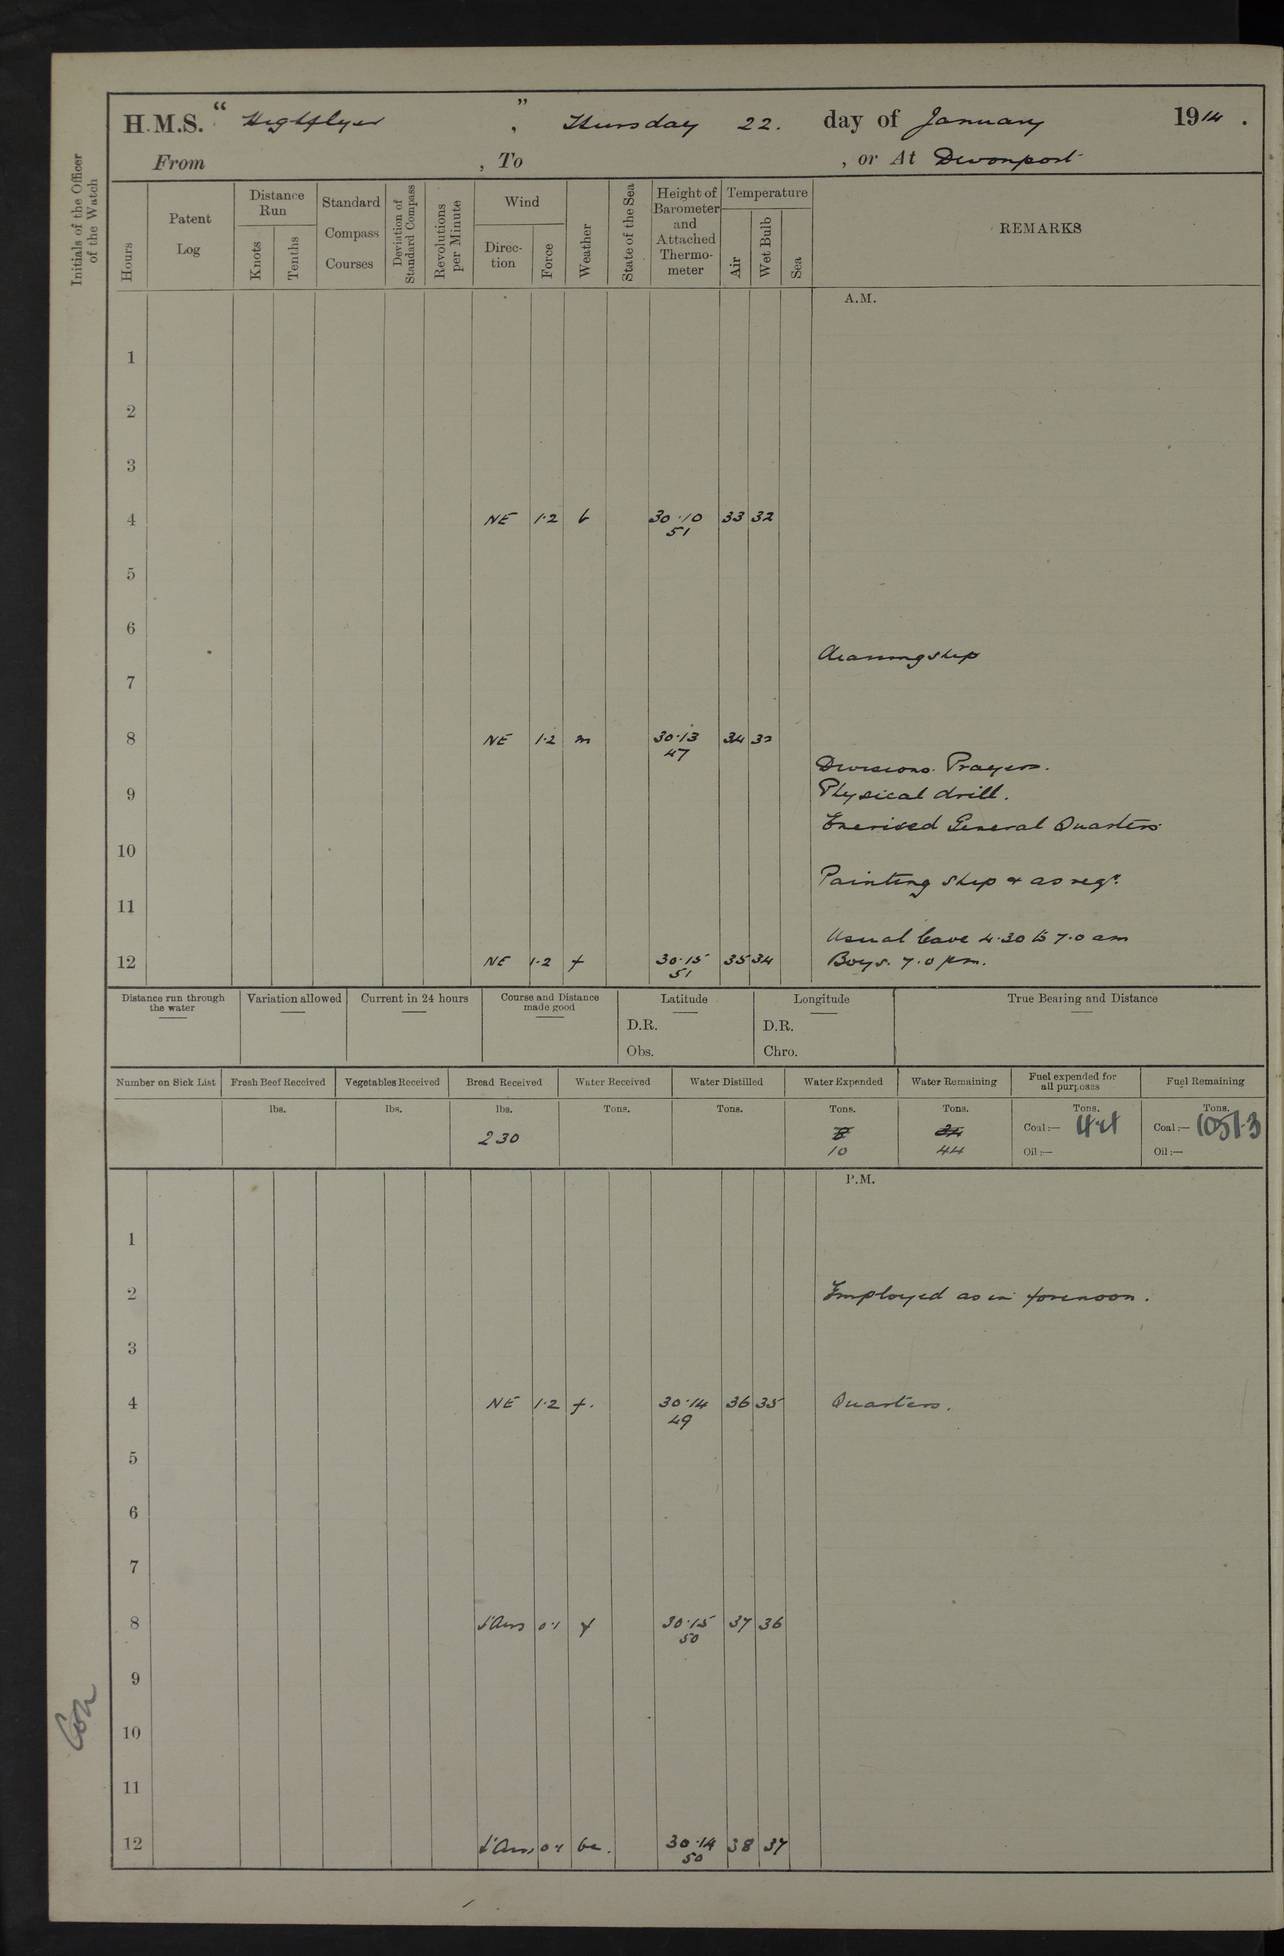 H.M.S. "Highflyer", Thursday 22. day of January 1914.
From , To , or At Devonport
Initials of the Officer of the Watch
Hours
Patent Log
Distance Run
Knots
Tenths
Standard Compass Courses
Deviation of Standard Compass
Revolutions per Minute
Wind
Direction
Force
Weather
State of the Sea
Height of Barometer and Attached Thermometer
Temperature
Air
Wet Bulb
Sea
REMARKS
A.M.
1
2
3
4 NE 1·2 b 30·10 33 32
51
5
6
Cleaning ship
7
8 NE 1·2 m 30·13 34 32
47
Divisions. Prayers.
9 Physical drill.
Exerised General Quarters
10
Painting ship & as reqr.
11
Usual leave 4.30 to 7.0 am
12 NE 1·2 f 30·15 35 34 Boys. 7.0 pm.
51
Distance run through the water
Variation allowed
Current in 24 hours
Course and Distance made good
Latitude
D.R.
Obs.
Longitude
D.R.
Chro.
True Bearing and Distance
Number on Sick List
Fresh Beef Received
lbs.
Vegetables Received
lbs.
Bread Received
lbs.
230
Water Received
Tons.
Water Distilled
Tons.
Water Expended
Tons.
10
Water Remaining
Tons.
44
Fuel expended for all purposes
Tons.
Coal:—
Oil:—
Fuel Remaining
Tons.
Coal:— 1051·3
Oil:—
P.M.
1
2 Employed as in forenoon.
3
4 NE 1·2 f. 30·14 36 35 Quarters.
49
5
6
7
8 l'Airs 0·1 f 30·15 37 36
50
9
10
11
12 l'Airs 0·1 bc. 30·14 38 37
50